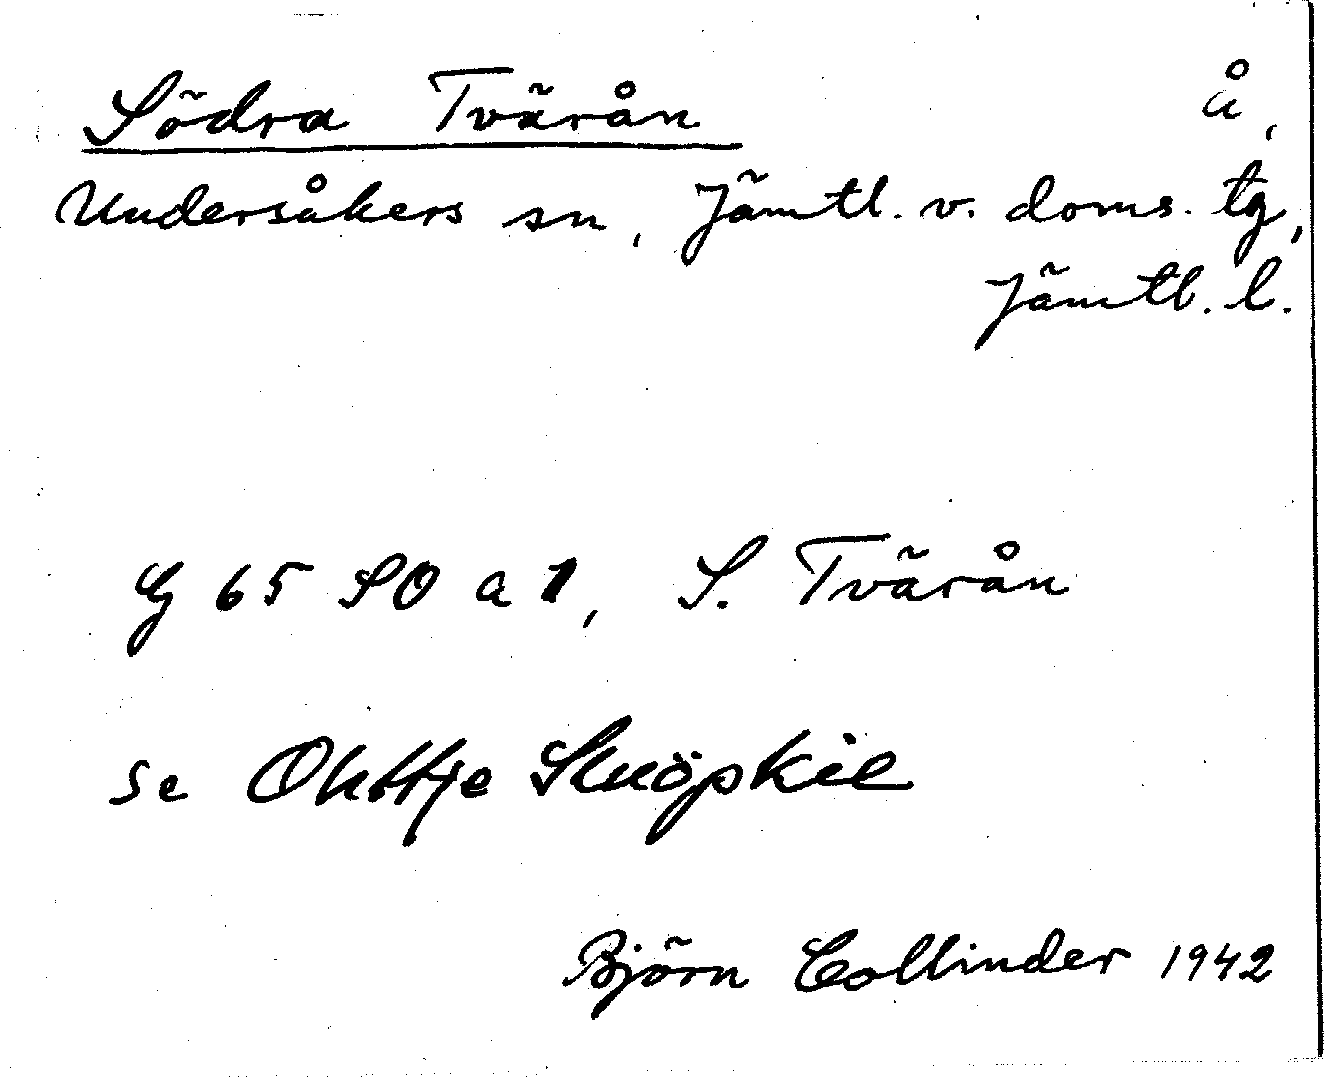 Södra Tvärån å,
Undersåkers sn, Jämtl. v. doms. tg,
Jämtl. l.
G 65 SO a 1, S. Tvärån
se Ohttje Snöpkie
Björn Collinder 1942